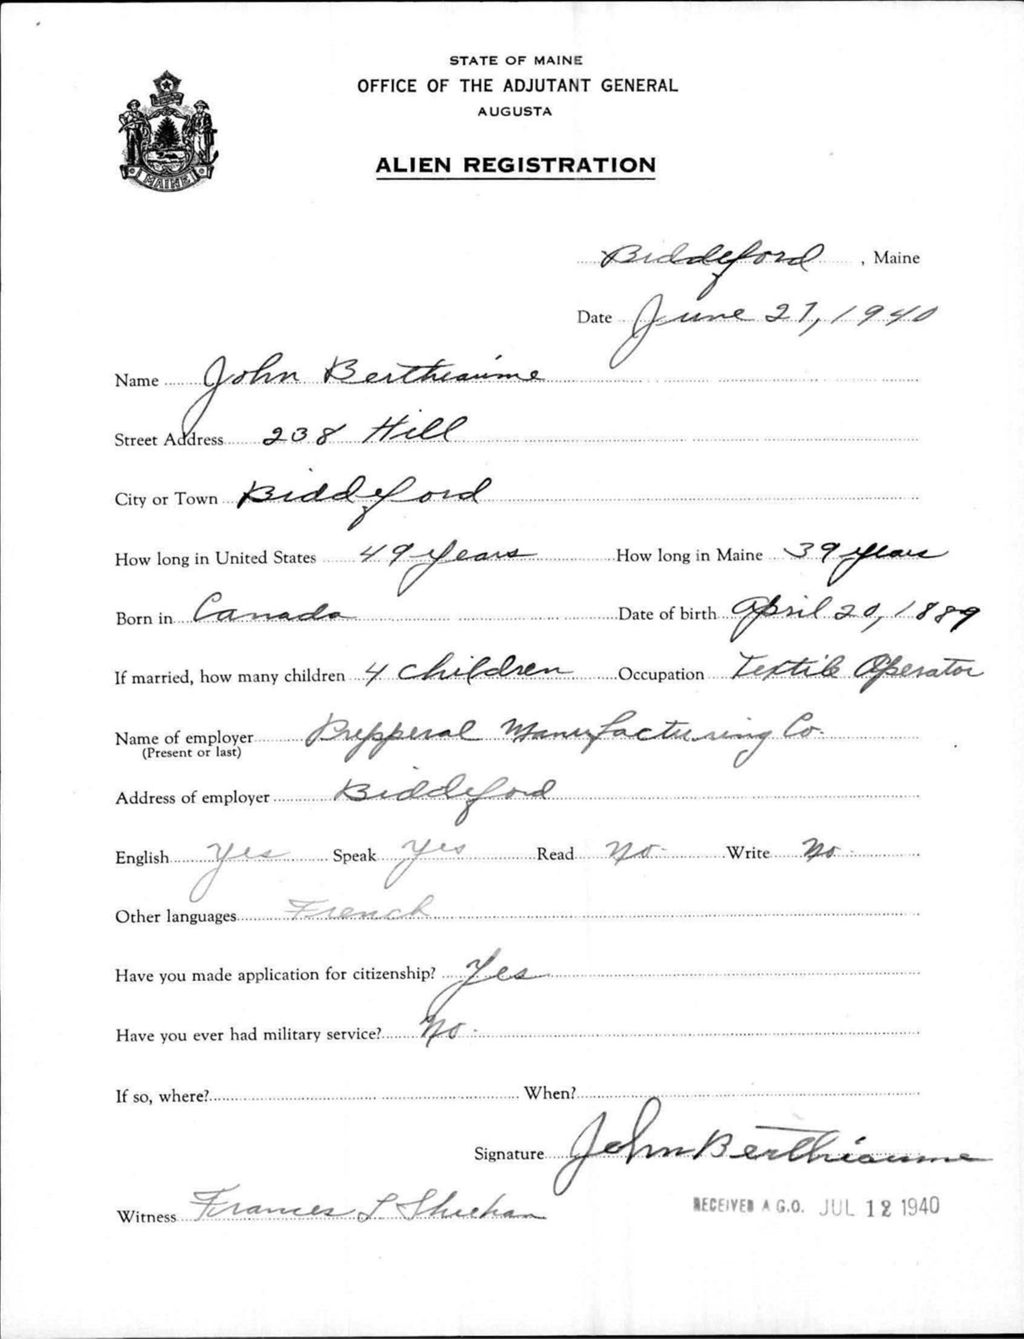 STATE OF MAINE
OFFICE OF THE ADJUTANT GENERAL
AUGUSTA
ALIEN REGISTRATION
MAINE
Biddeford, Maine
Date June 27, 1940
Name John Berthiaume
Street Address 238 Hill
City or Town Biddeford
How long in United States 49 years How long in Maine 39 years
Born in Canada Date of birth April 20, 1889
If married, how many children 4 children Occupation Textile Operator
Name of employer Prepperal Manufacturing Co.
(Present or last)
Address of employer Biddeford
English Yes Speak Yes Read No Write No
Other languages French
Have you made application for citizenship? Yes
Have you ever had military service? No
If so, where? When?
Signature John Berthiaume
Witness Frances L Sheehan
RECEIVED A.G.O. JUL 12 1940